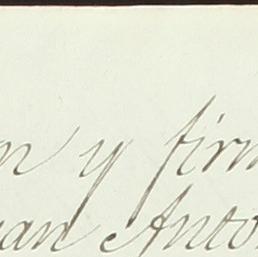 n y firm
uan Anto